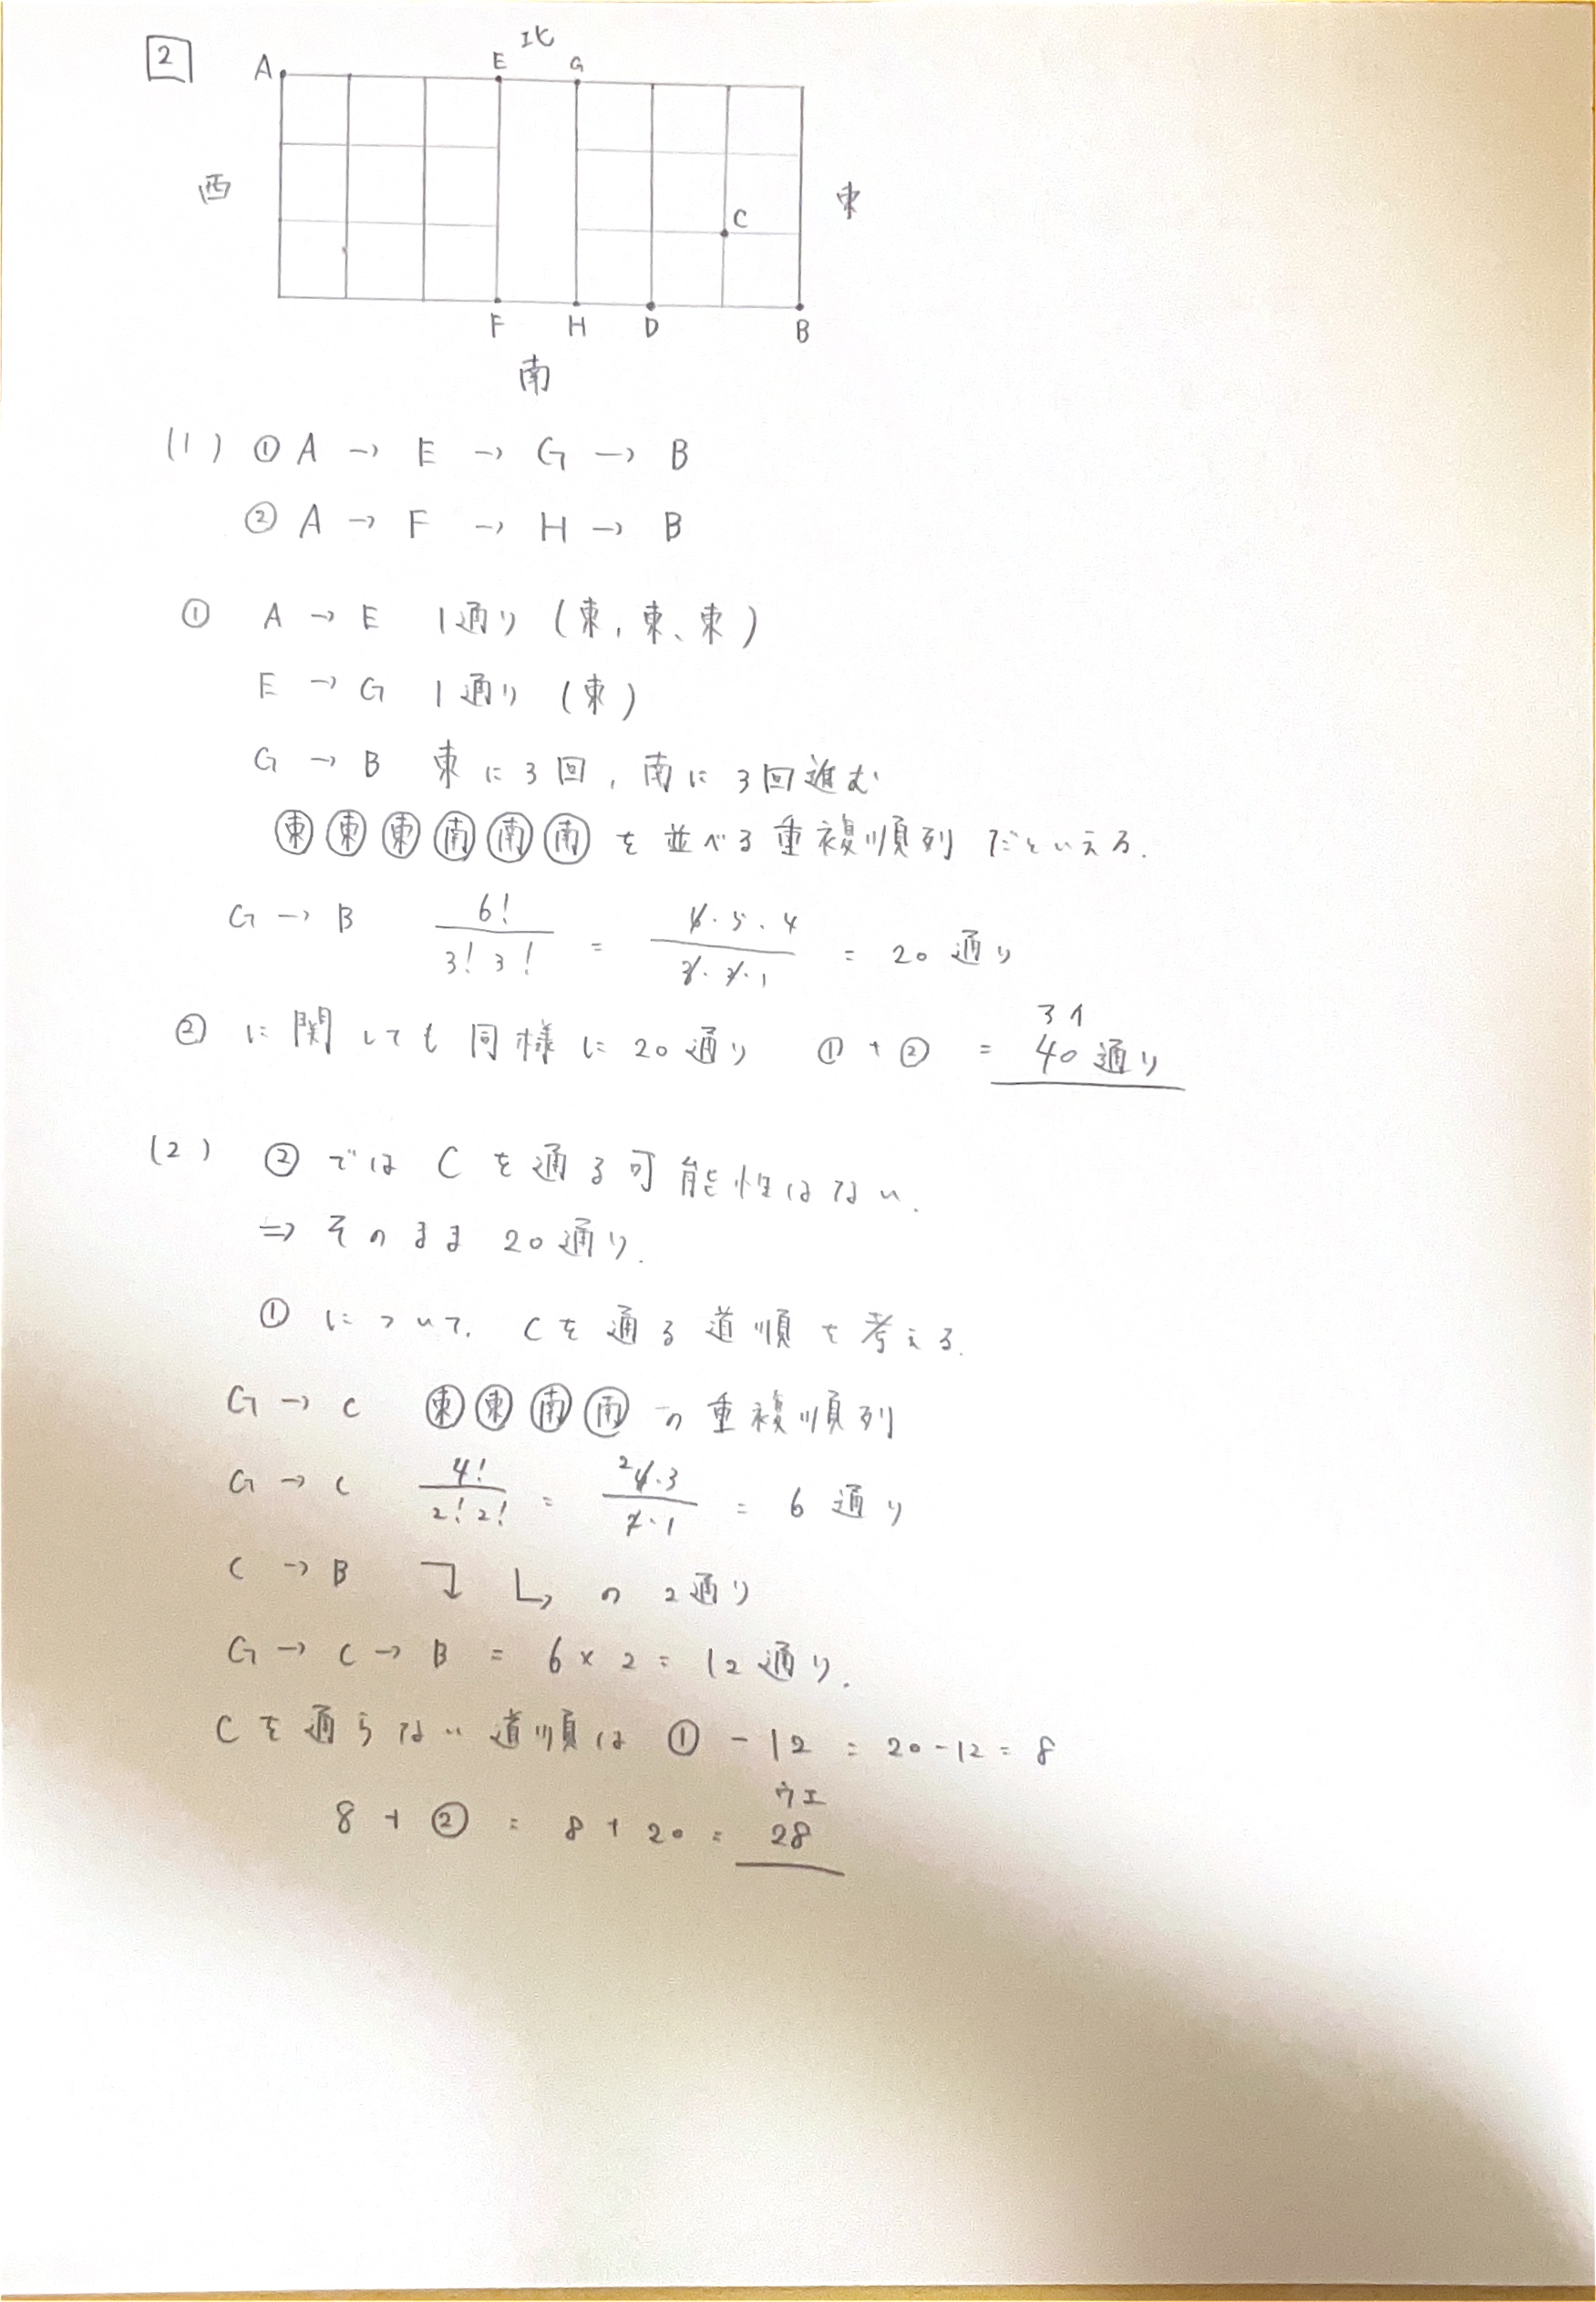 2
北
A E G
西 東
C
F H D B
南
(1) ① A → E → G → B
② A → F → H → B
① A → E 1通り (東, 東、東)
E → G 1通り (東)
G → B 東に3回, 南に3回進む
東 東 東 南 南 南 を並べる重複順列だといえる.
G → B 6!/3! 3! = 6·5·4/3·2·1 = 20通り
アイ
② に関しても同様に20通り ① + ② = 40通り
(2) ② では C を通る可能性はない.
⇒ そのまま 20通り.
① について. Cを通る道順を考える.
G → C 東 東 南 南 の重複順列
G → C 4!/2! 2! = ²4·3/2·1 = 6通り
C → B の 2通り
G → C → B = 6 × 2 = 12通り.
Cを通らない道順は ① - 12 = 20 - 12 = 8
ウエ
8 + ② = 8 + 20 = 28